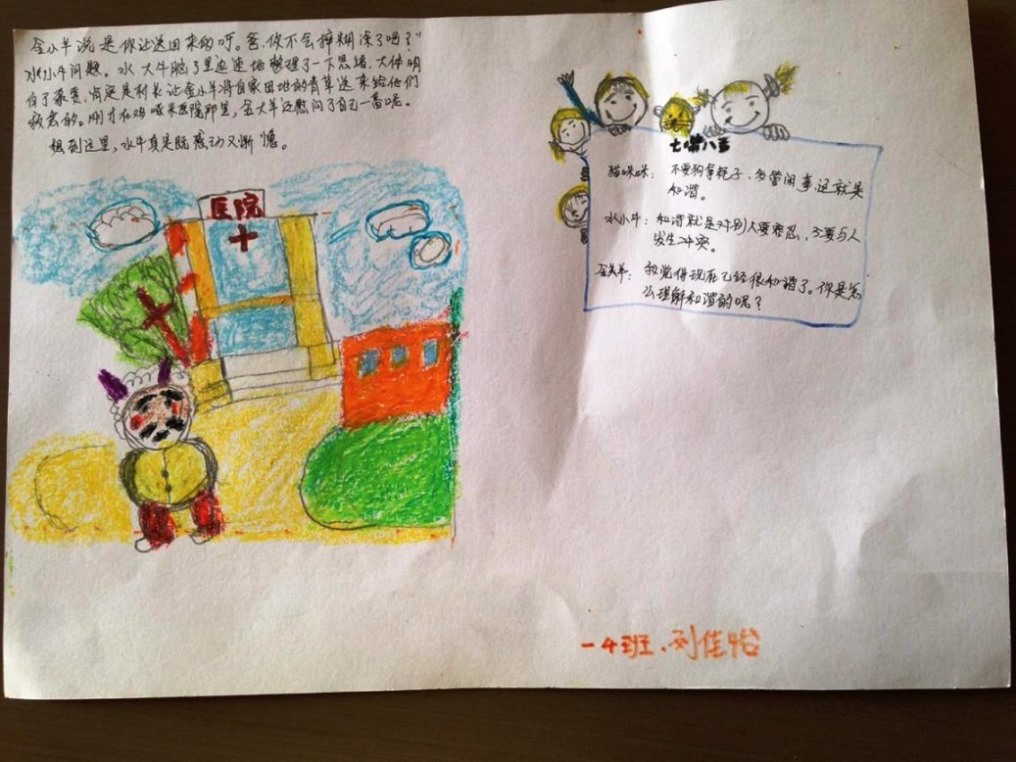 金小羊说是你让送回来的呀。爸，你不会摔糊涂了吧？”
水小牛问题。水大牛脑子里迅速地整理了一下思绪，大体明
白了原委，肯定是村长让金小羊将自家田地的青草送来给他们
救急的。刚才在鸡 医院那里，金大羊还慰问了自己一番呢。
想到这里，水牛真是既感动又惭愧。
医院
七嘴八舌
猫咪咪：不要狗拿耗子，多管闲事这就是
和谐。
水小牛：和谐就是对别人要容忍，不要与人
发生冲突。
金羊：我觉得现在已经很和谐了。你是怎
么理解和谐的呢？
一4班、刘佳怡